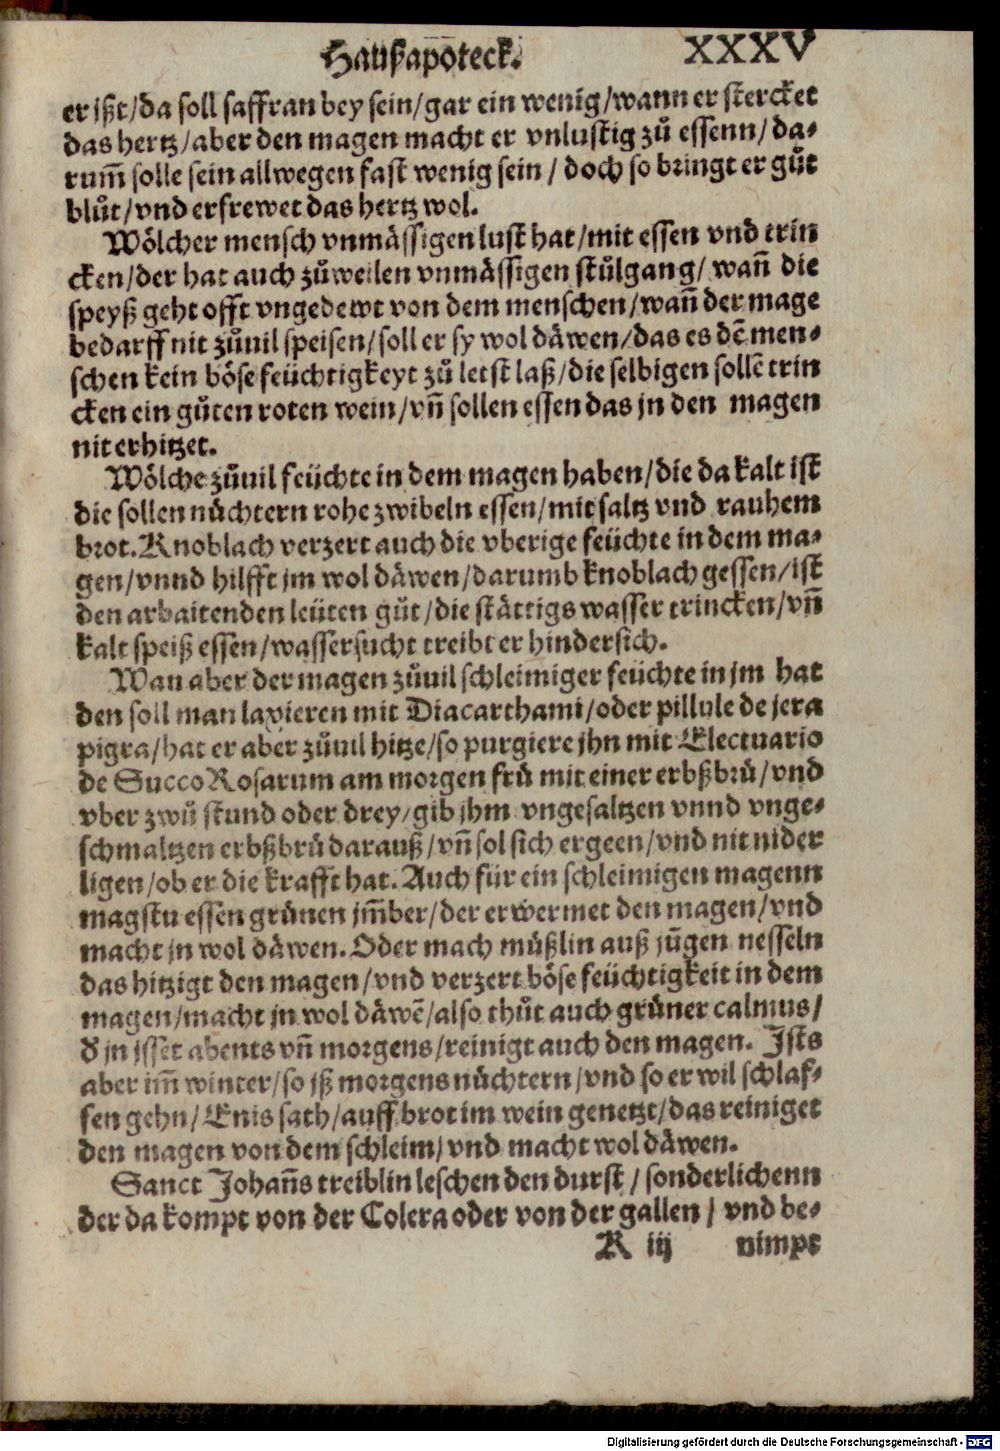 Haußapoteck. XXXV
er jßt/da soll saffran bey sein/gar ein wenig/wann er stercket
das hertz/aber den magen macht er vnlustig zů essenn/da-
rum̃ solle sein allwegen fast wenig sein/doch so bringt er gůt
blůt/vnd erfrewet das hertz wol.
Wölcher mensch vnmässigen lust hat/mit essen vnd trin
cken/der hat auch zůweilen vnmässigen stůlgang/wañ die
speyß geht offt vngedewt von dem menschen/wañ der mage
bedarff nit zůuil speisen/soll er sy wol däwen/das es dẽ men-
schen kein böse feüchtigkeyt zů letst laß/die selbigen sollẽ trin
cken ein gůten roten wein/vñ sollen essen das jn den magen
nit erhitzet.
Wölche zůuil feüchte in dem magen haben/die da kalt ist
die sollen nüchtern rohe zwibeln essen/mit saltz vnd rauhem
brot. Knoblach verzert auch die vberige feüchte in dem ma-
gen/vnnd hilfft jm wol däwen/darumb knoblach gessen/ist
den arbaitenden leüten gůt/die stättigs wasser trincken/vñ
kalt speiß essen/wassersucht treibt er hindersich.
Wan aber der magen zůuil schleimiger feüchte in jm hat
den soll man laxieren mit Diacarthami/oder pillule de jera
pigra/hat er aber zůuil hitze/so purgiere jhn mit Electuario
de Succo Rosarum am morgen frü mit einer erbßbrü/vnd
vber zwů stund oder drey/gib jhm vngesaltzen vnnd vnge-
schmaltzen erbßbrü darauß/vñ sol sich ergeen/vnd nit nider
ligen/ob er die krafft hat. Auch für ein schleimigen magenn
magstu essen grünen jm̃ber/der erwermet den magen/vnd
macht jn wol däwen. Oder mach müßlin auß jũgen nesseln
das hitzigt den magen/vnd verzert böse feüchtigkeit in dem
magen/macht jn wol däwẽ/also thůt auch grüner calmus/
d' jn jsset abents vñ morgens/reinigt auch den magen. Ists
aber im̃ winter/so jß morgens nüchtern/vnd so er wil schlaf-
fen gehn/Enis sath/auff brot im wein genetzt/das reiniget
den magen von dem schleim/vnd macht wol däwen.
Sanct Johañs treiblin leschen den durst/sonderlichenn
der da kompt von der Colera oder von der gallen/vnd be-
K iij nimpt
Digitalisierung gefördert durch die Deutsche Forschungsgemeinschaft - DFG